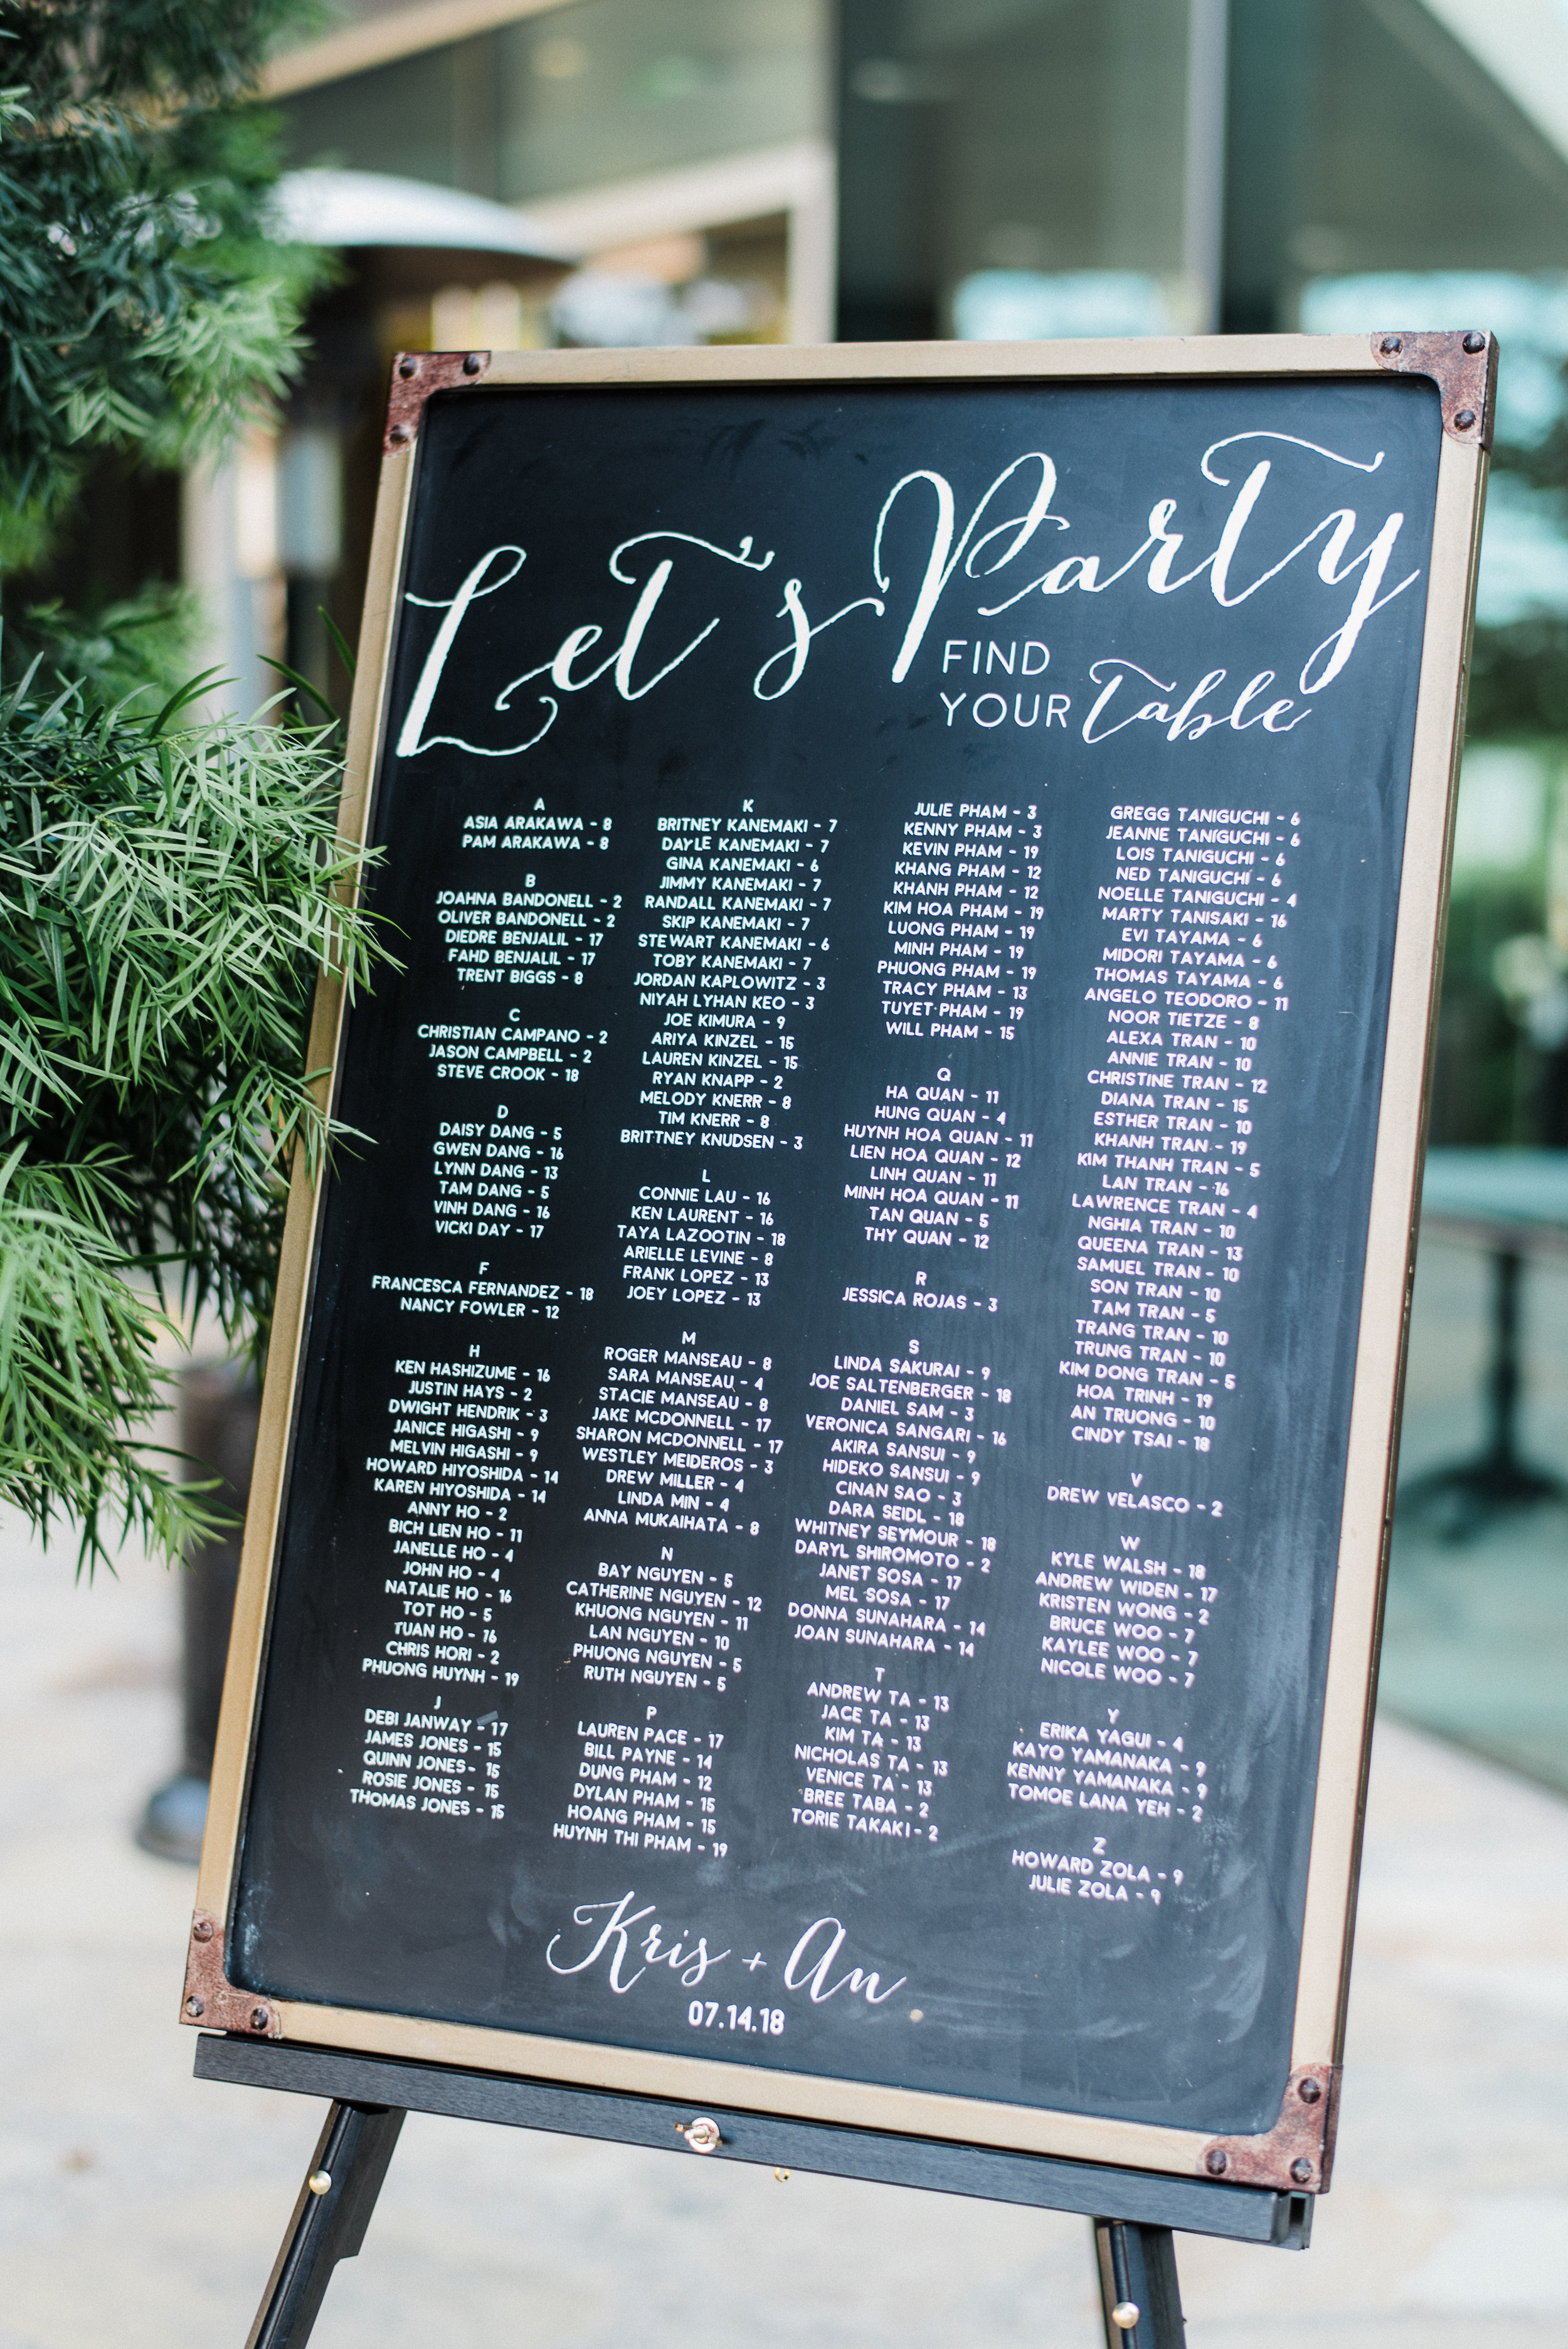 Let's Party
FIND
YOUR Table
A
ASIA ARAKAWA - 8
PAM ARAKAWA - 8
B
JOAHNA BANDONELL - 2
OLIVER BANDONELL - 2
DIEDRE BENJALIL - 17
FAHD BENJALIL - 17
TRENT BIGGS - 8
C
CHRISTIAN CAMPANO - 2
JASON CAMPBELL - 2
STEVE CROOK - 18
D
DAISY DANG - 5
GWEN DANG - 16
LYNN DANG - 13
TAM DANG - 5
VINH DANG - 16
VICKI DAY - 17
F
FRANCESCA FERNANDEZ - 18
NANCY FOWLER - 12
H
KEN HASHIZUME - 16
JUSTIN HAYS - 2
DWIGHT HENDRIK - 3
JANICE HIGASHI - 9
MELVIN HIGASHI - 9
HOWARD HIYOSHIDA - 14
KAREN HIYOSHIDA - 14
ANNY HO - 2
BICH LIEN HO - 11
JANELLE HO - 4
JOHN HO - 4
NATALIE HO - 16
TOT HO - 5
TUAN HO - 16
CHRIS HORI - 2
PHUONG HUYNH - 19
J
DEBI JANWAY - 17
JAMES JONES - 15
QUINN JONES - 15
ROSIE JONES - 15
THOMAS JONES - 15
K
BRITNEY KANEMAKI - 7
DAYLE KANEMAKI - 7
GINA KANEMAKI - 6
JIMMY KANEMAKI - 7
RANDALL KANEMAKI - 7
SKIP KANEMAKI - 7
STEWART KANEMAKI - 6
TOBY KANEMAKI - 7
JORDAN KAPLOWITZ - 3
NIYAH LYHAN KEO - 3
JOE KIMURA - 9
ARIYA KINZEL - 15
LAUREN KINZEL - 15
RYAN KNAPP - 2
MELODY KNERR - 8
TIM KNERR - 8
BRITTNEY KNUDSEN - 3
L
CONNIE LAU - 16
KEN LAURENT - 16
TAYA LAZOOTIN - 18
ARIELLE LEVINE - 8
FRANK LOPEZ - 13
JOEY LOPEZ - 13
M
ROGER MANSEAU - 8
SARA MANSEAU - 4
STACIE MANSEAU - 8
JAKE MCDONNELL - 17
SHARON MCDONNELL - 17
WESTLEY MEIDEROS - 3
DREW MILLER - 4
LINDA MIN - 4
ANNA MUKAIHATA - 8
N
BAY NGUYEN - 5
CATHERINE NGUYEN - 12
KHUONG NGUYEN - 11
LAN NGUYEN - 10
PHUONG NGUYEN - 5
RUTH NGUYEN - 5
P
LAUREN PACE - 17
BILL PAYNE - 14
DUNG PHAM - 12
DYLAN PHAM - 15
HOANG PHAM - 15
HUYNH THI PHAM - 19
JULIE PHAM - 3
KENNY PHAM - 3
KEVIN PHAM - 19
KHANG PHAM - 12
KHANH PHAM - 12
KIM HOA PHAM - 19
LUONG PHAM - 19
MINH PHAM - 19
PHUONG PHAM - 19
TRACY PHAM - 13
TUYET PHAM - 19
WILL PHAM - 15
Q
HA QUAN - 11
HUNG QUAN - 4
HUYNH HOA QUAN - 11
LIEN HOA QUAN - 12
LINH QUAN - 11
MINH HOA QUAN - 11
TAN QUAN - 5
THY QUAN - 12
R
JESSICA ROJAS - 3
S
LINDA SAKURAI - 9
JOE SALTENBERGER - 18
DANIEL SAM - 3
VERONICA SANGARI - 16
AKIRA SANSUI - 9
HIDEKO SANSUI - 9
CINAN SAO - 3
DARA SEIDL - 18
WHITNEY SEYMOUR - 18
DARYL SHIROMOTO - 2
JANET SOSA - 17
MEL SOSA - 17
DONNA SUNAHARA - 14
JOAN SUNAHARA - 14
T
ANDREW TA - 13
JACE TA - 13
KIM TA - 13
NICHOLAS TA - 13
VENICE TA - 13
BREE TABA - 2
TORIE TAKAKI - 2
GREGG TANIGUCHI - 6
JEANNE TANIGUCHI - 6
LOIS TANIGUCHI - 6
NED TANIGUCHI - 6
NOELLE TANIGUCHI - 4
MARTY TANISAKI - 16
EVI TAYAMA - 6
MIDORI TAYAMA - 6
THOMAS TAYAMA - 6
ANGELO TEODORO - 11
NOOR TIETZE - 8
ALEXA TRAN - 10
ANNIE TRAN - 10
CHRISTINE TRAN - 12
DIANA TRAN - 15
ESTHER TRAN - 10
KHANH TRAN - 19
KIM THANH TRAN - 5
LAN TRAN - 16
LAWRENCE TRAN - 4
NGHIA TRAN - 10
QUEENA TRAN - 13
SAMUEL TRAN - 10
SON TRAN - 10
TAM TRAN - 5
TRANG TRAN - 10
TRUNG TRAN - 10
KIM DONG TRAN - 5
HOA TRINH - 19
AN TRUONG - 10
CINDY TSAI - 18
V
DREW VELASCO - 2
W
KYLE WALSH - 18
ANDREW WIDEN - 17
KRISTEN WONG - 2
BRUCE WOO - 7
KAYLEE WOO - 7
NICOLE WOO - 7
Y
ERIKA YAGUI - 4
KAYO YAMANAKA - 9
KENNY YAMANAKA - 9
TOMOE LANA YEH - 2
Z
HOWARD ZOLA - 9
JULIE ZOLA - 9
Kris + An
07.14.18